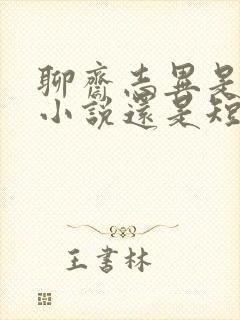 聊齋志異是
小說還是短
王書林